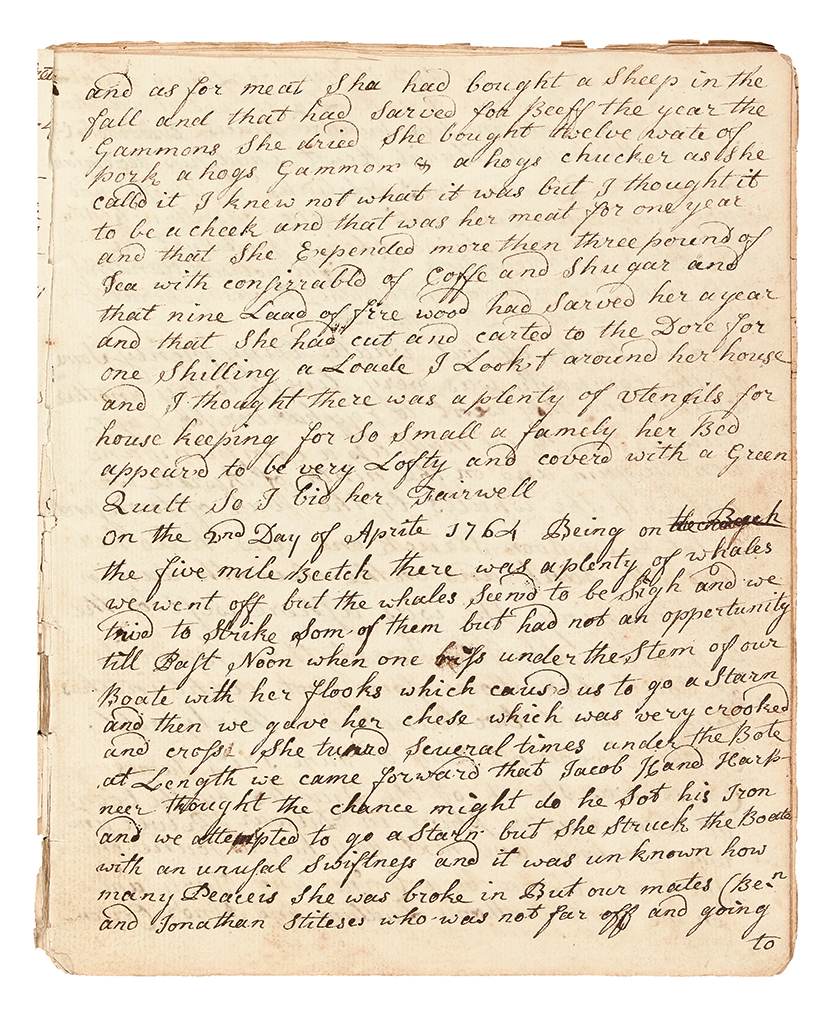 and as for meat Sha had bought a Sheep in the
fall and that had Sarved for Beeff the year the
Gammons She dried She bought twelve wate of
pork a hogs Gammom & a hogs chucker as She
calld it I knew not what it was but I thought it
to be a cheek and that was her meat for one year
and that She Expended more then three pound of
Tea with consirrabld of Coffe and Shugar and
that nine Laad of fire wood had Sarved her a year
and that She had cut and carted to the Dore for
one Shilling a Loade I Lookt around her house
and I thought there was a plenty of vtensils for
house keeping for So Small a famely her Bed
appeard to be very Lofty and coverd with a Green
Quilt So I bid her Fairwell
on the 2nd Day of Aprile 1764 Being on
the five mile Beetch there was a plenty of whales
we went off but the whales Seemd to be Sligh and we
tried to Strike Som of them but had not an opportunity
till Past Noon when one under the Stem of our
Boate with her flooks which causd us to go a Starn
and then we gave her chese which was very crooked
and cross She turnd Several times under the Bote
at Length we came forward that Jacob Hand Harp-
neer thought the chance might do he Sot his Iron
and we attempted to go a Starn but She Struck the Boate
with an unusal Swiftness and it was unknown how
many Peaceis She was broke in But our mates (Ben
and Jonathan Stiteses who was not far off and going
to